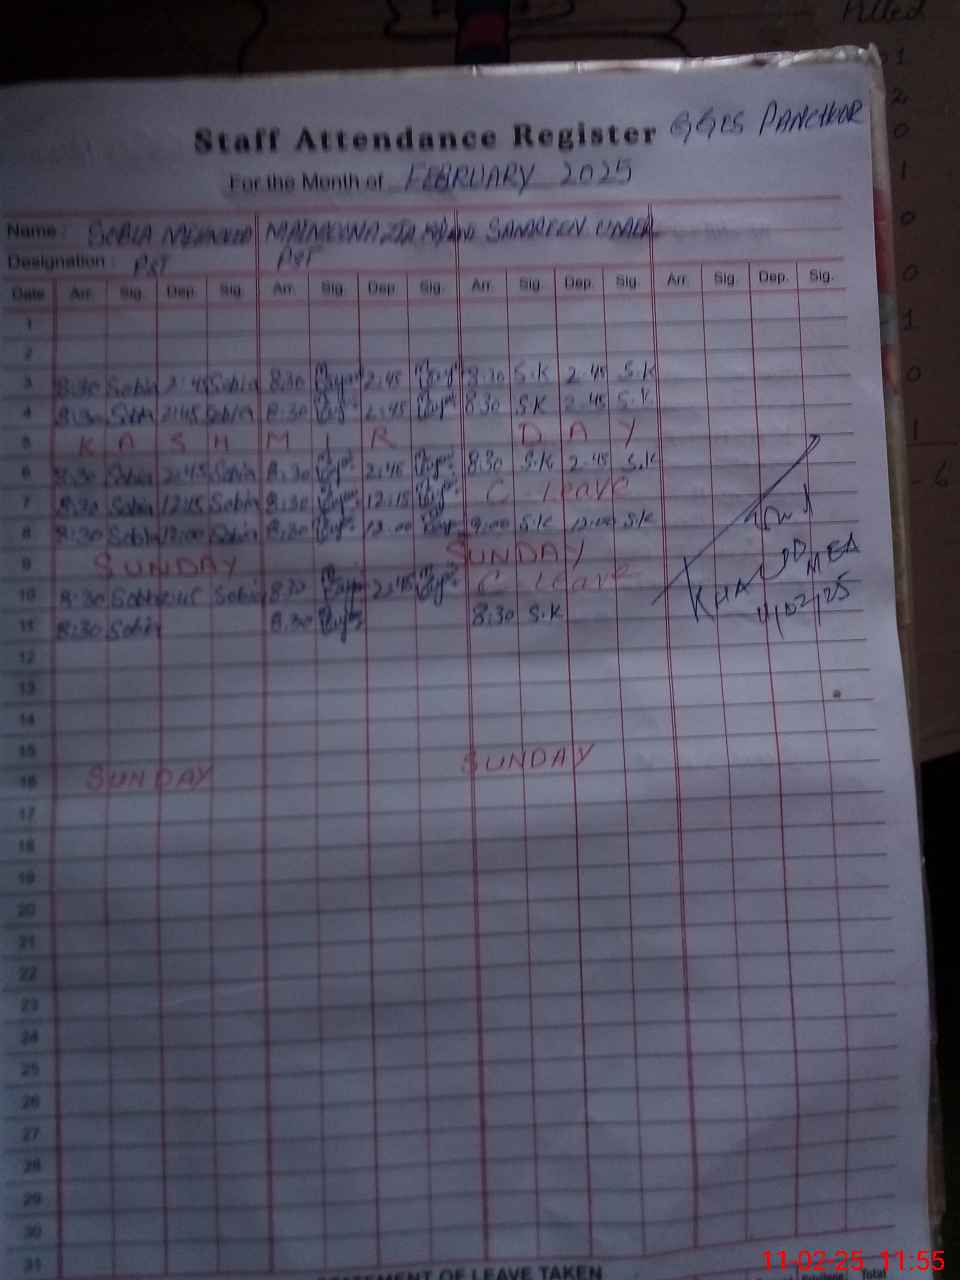 Filled
Staff Attendance Register GGES PANCHKOR
For the Month of FEBRUARY 2025
Name : SOBIA MAIMOONA ZIA SAMREEN
Designation : PST PST
Date Arr. Sig. Dep. Sig. Arr. Sig. Dep. Sig. Arr. Sig. Dep. Sig. Arr. Sig. Dep. Sig.
1
2
3 8:30 Sobia 2:45 Sobia 8:30 2:45 8:30 S.K 2.45 S.K
4 8:30 Sobia 2:45 Sobia 8:30 2:45 8:30 S.K 2.45 S.K
5 K A S H M I R D A Y
6 8:30 Sobia 2:45 Sobia 8:30 2:45 8:30 S.K 2.45 S.K
7 8:30 Sobia 12:15 Sobia 8:30 12:15 C. Leave
8 8:30 Sobia 12:00 Sobia 8:30 12:00 9:00 S.K 12:00 S.K
9 SUNDAY SUNDAY
10 8:30 Sobia Sobia 8:30 2:45 C Leave
11 8:30 Sobia 8:30 8:30 S.K
MEA
11/02/25
12
13
14
15
16 SUNDAY SUNDAY
17
18
19
20
21
22
23
24
25
26
27
28
29
30
31
STATEMENT OF LEAVE TAKEN
Total
11-02-25 11:55